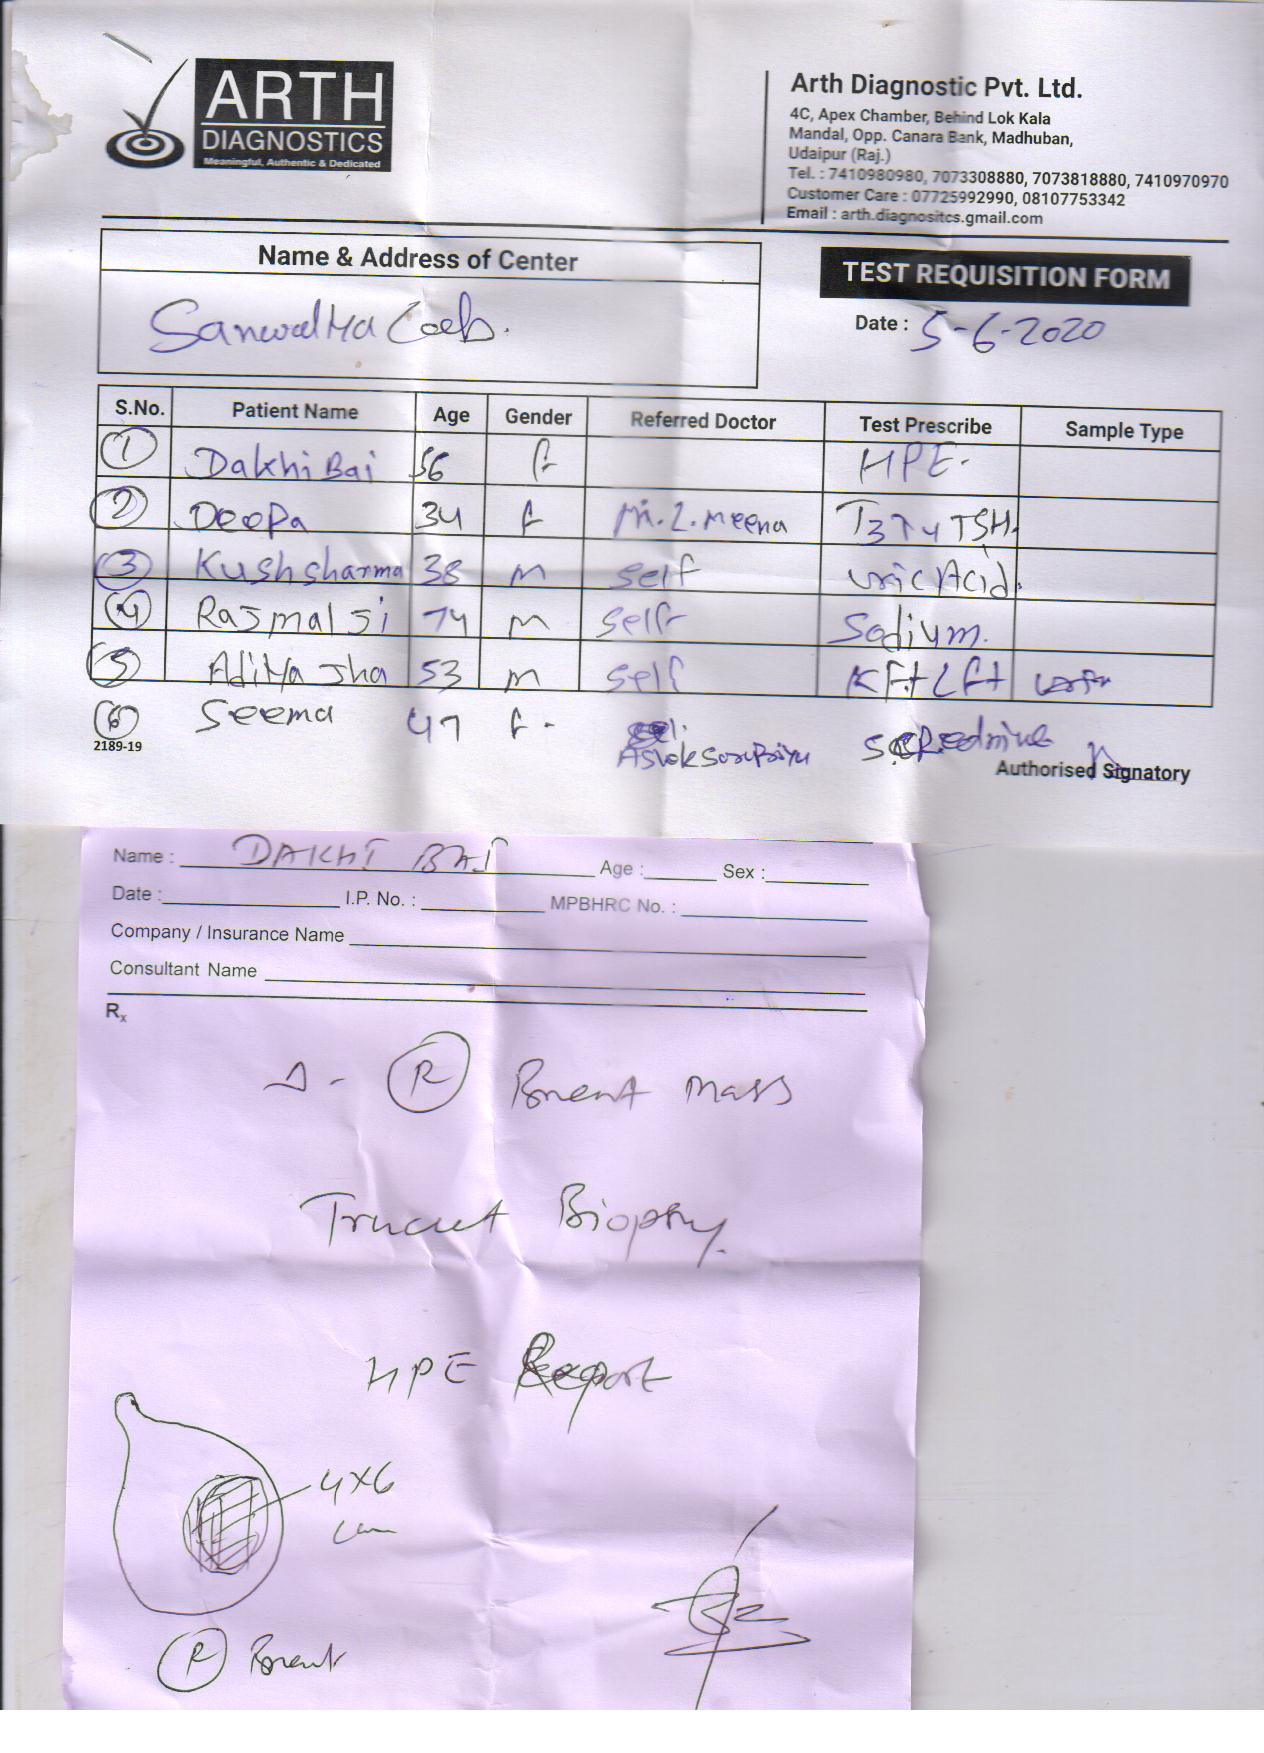 ARTH
DIAGNOSTICS
Meaningful, Authentic & Dedicated
Arth Diagnostic Pvt. Ltd.
4C, Apex Chamber, Behind Lok Kala
Mandal, Opp. Canara Bank, Madhuban,
Udaipur (Raj.)
Tel. : 7410980980, 7073308880, 7073818880, 7410970970
Customer Care : 07725992990, 08107753342
Email : arth.diagnositcs.gmail.com
Name & Address of Center
TEST REQUISITION FORM
Date : 5-6-2020
S.No. Patient Name Age Gender Referred Doctor Test Prescribe Sample Type
1 Dakhi Bai 56 f HPE-
2 Deepa 34 f M.L.Meena T3T4TSH.
3 Kush sharma 38 m self uric Acid.
4 Rajmal ji 74 m self Sodium.
5 Aditya Jha 53 m self KFt Lft
6 Seema 47 f- Ashok
2189-19
Authorised Signatory
Name : DAKHI BAI Age : Sex :
Date : I.P. No. : MPBHRC No. :
Company / Insurance Name
Consultant Name
Rx
Δ - R Breast mass
Trucut Biopsy.
HPE Report
4x6
cm
R Breast